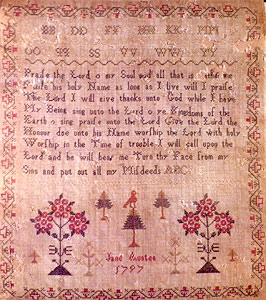 Praise the Lord o my Soul and all that is within me
Praise his holy Name as long as I live will I praise
The Lord I will give thanks unto God while I have
My Being sing unto the Lord o ye Kingdoms of the
Earth o sing praise unto the Lord Give the Lord the
Honour due unto his Name worship the Lord with holy
Worship in the Time of trouble I will call upon the
Lord and he will hear me Turn thy Face from my
Sins and put out all my Misdeeds ABC
Jane Austen
1797